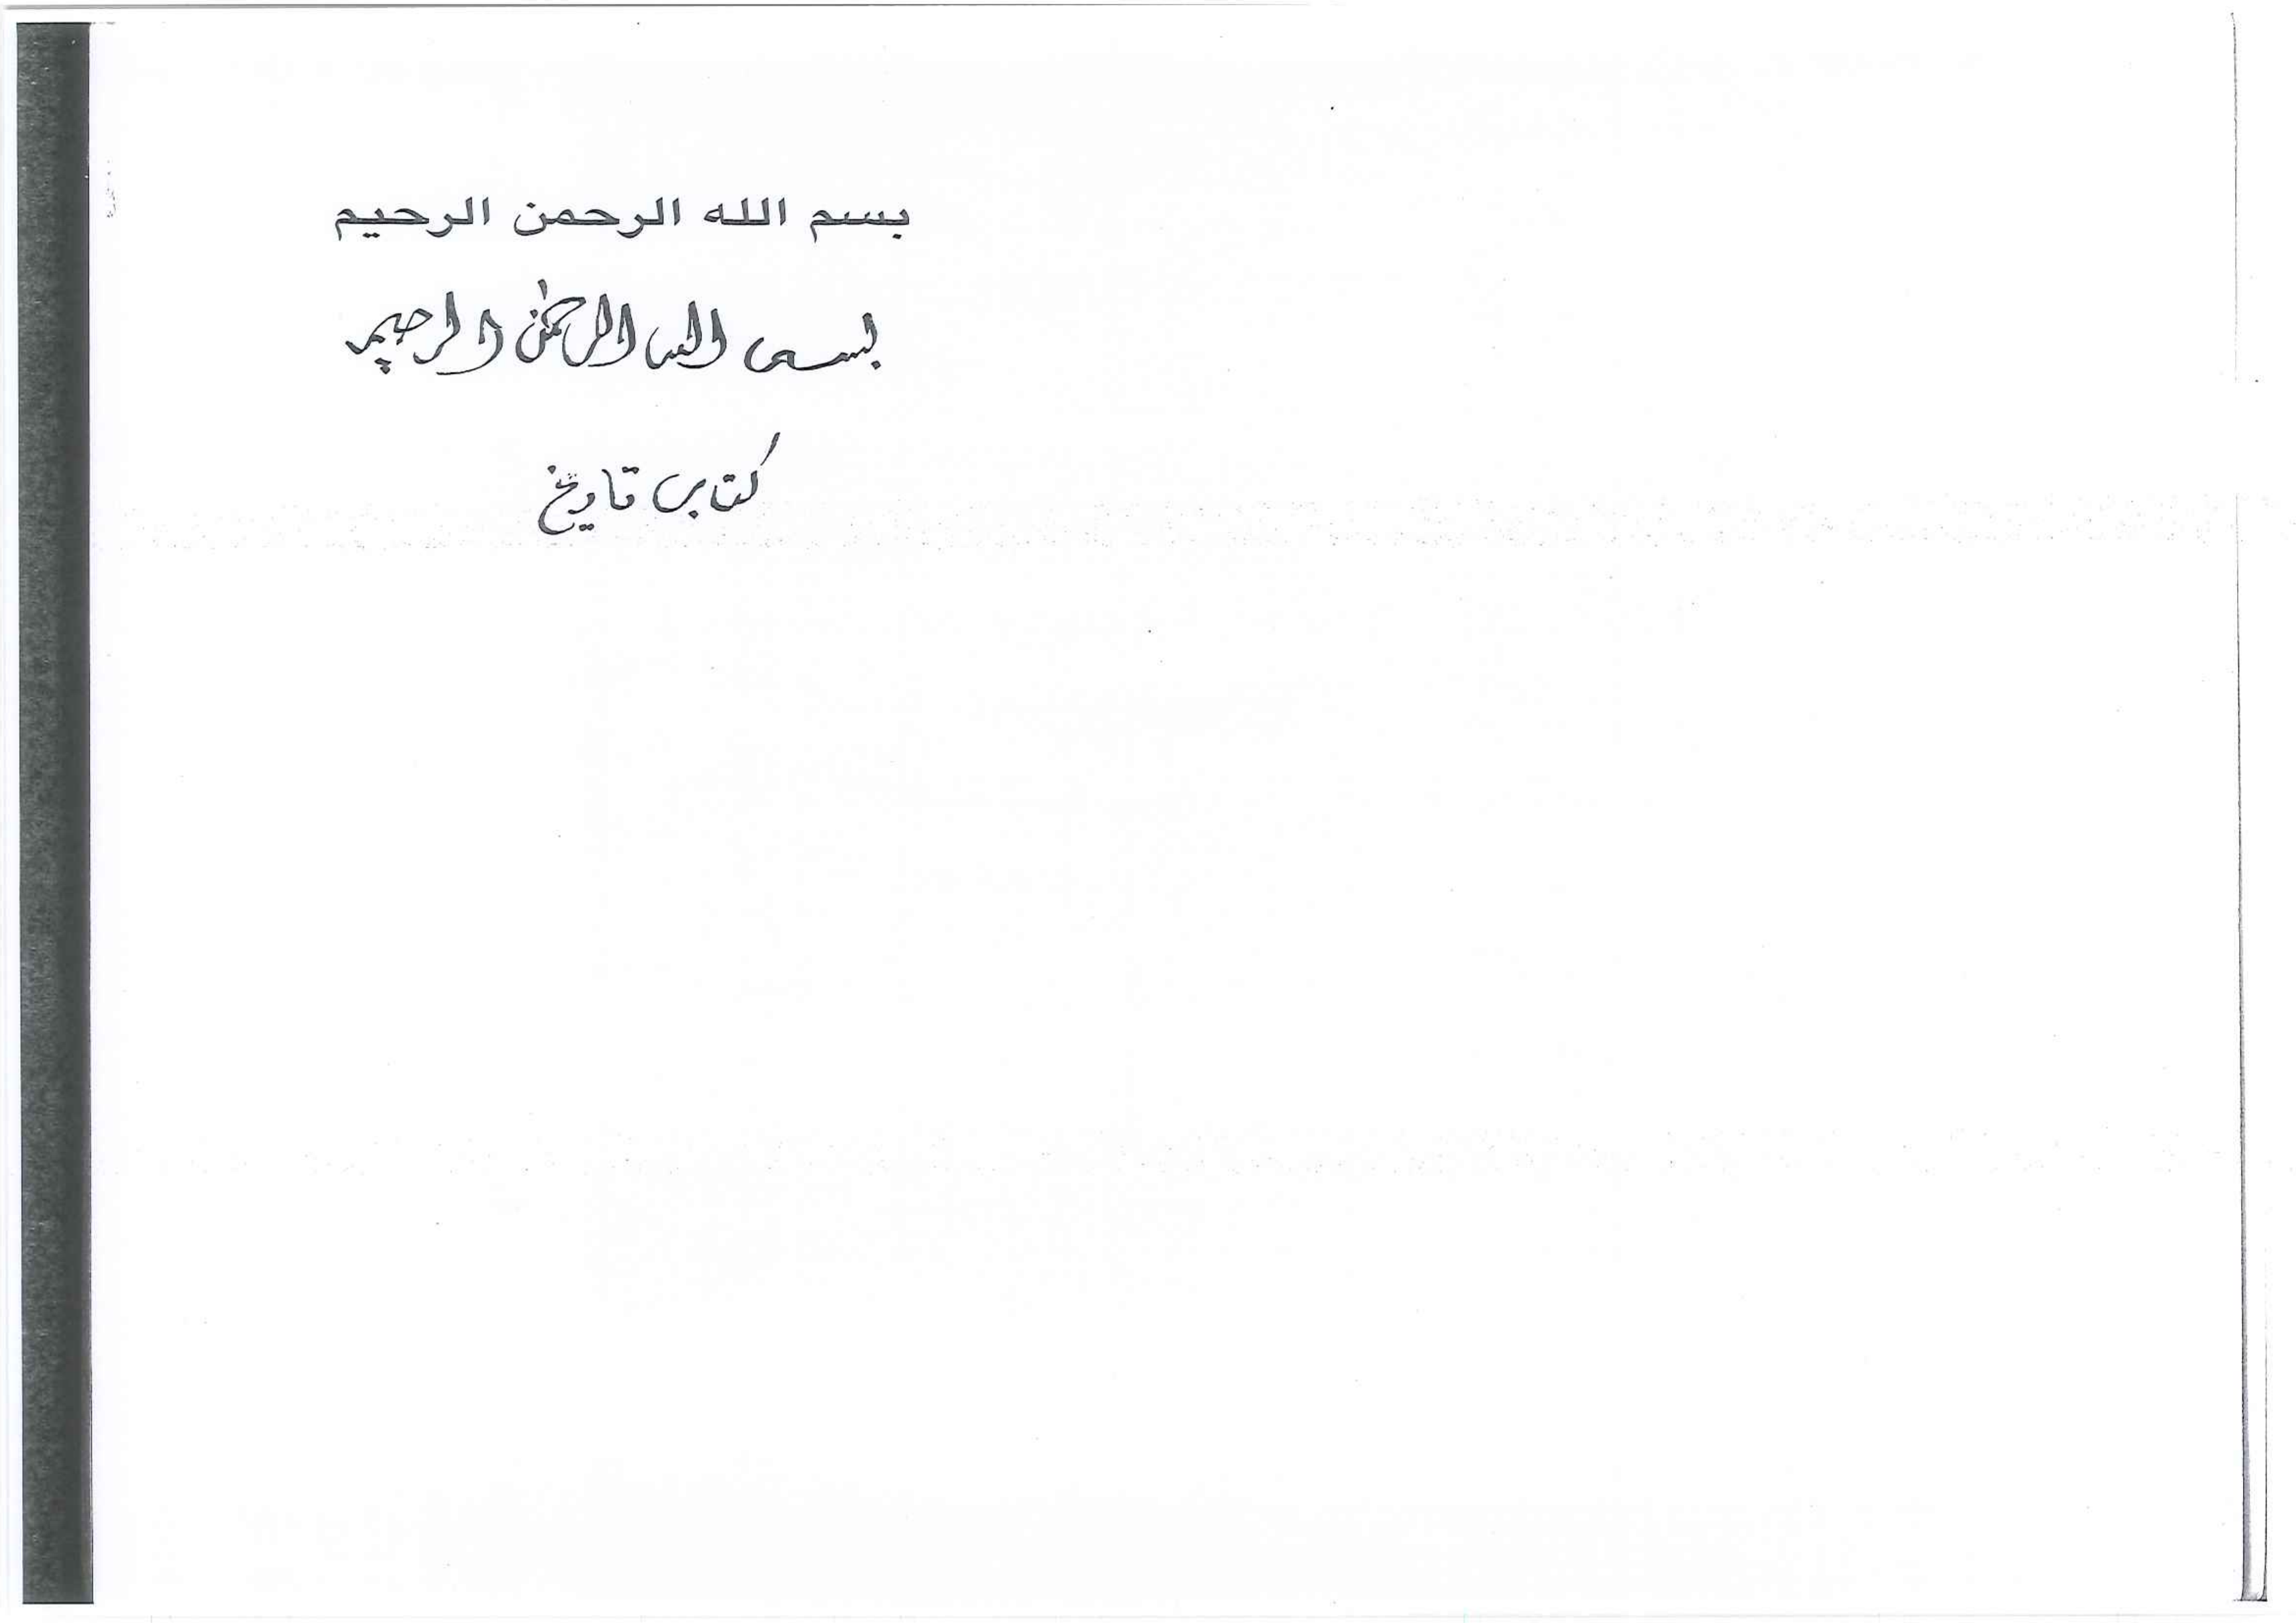 بسم الله الرحمن الرحيم
بسم الله الرحمٰن الرحيم
كتاب تاريخ